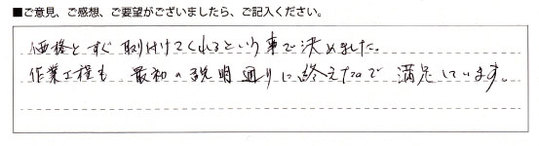 ■ご意見、ご感想、ご要望がございましたら、ご記入ください。
価格とすぐ取付けてくれるという事で決めました。
作業工程も最初の説明通りに終えたので満足しています。